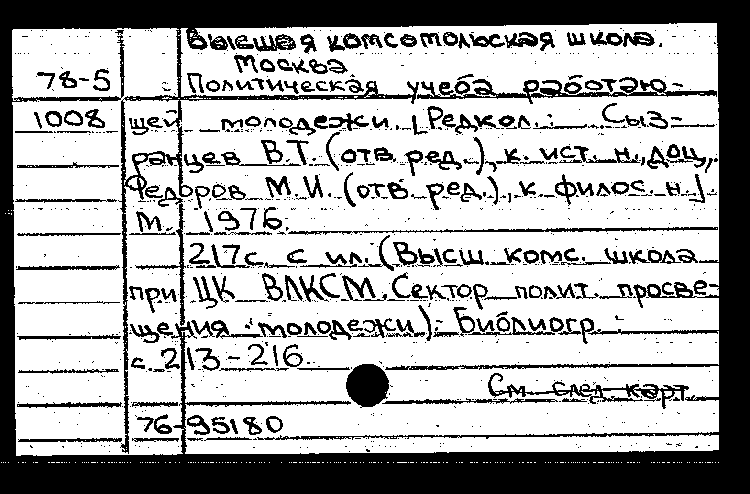 Высшая комсомольская школа.
Москва
78-5 Политическая учеба работаю-
1008 щей молодежи. [Редкол.: Сыз-
ранцев В.Т. (отв. ред.), к. ист. н., доц.,
Федоров М.И. (отв. ред.), к. филос. н.]
М., 1976.
217с. с ил. (Высш. комс. школа
при ЦК ВЛКСМ. Сектор полит. просве-
щения молодежи). Библиогр.:
с. 213-216.
См. след. карт.
76-95180